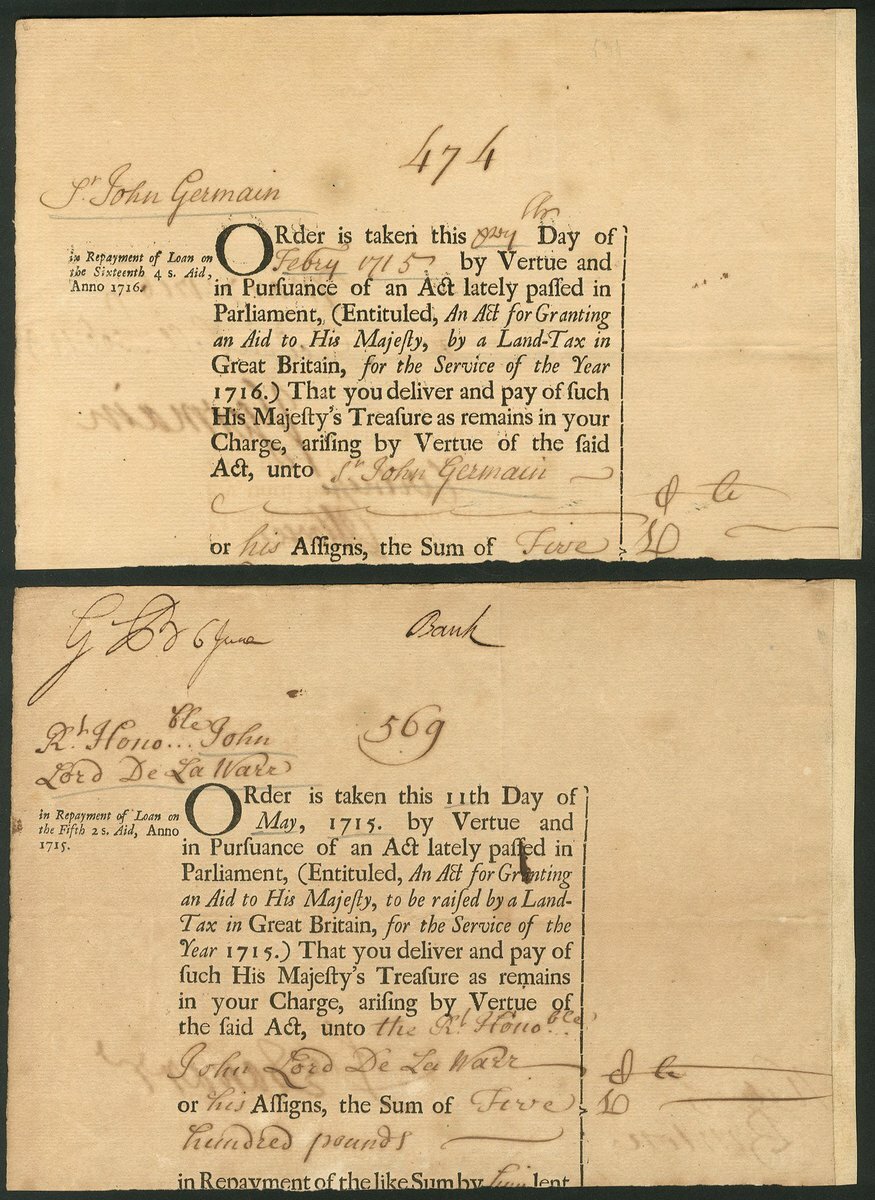 474
Sr. John Germain
in Repayment of Loan on
the Sixteenth 4 s. Aid,
Anno 1716.
ORder is taken this Day of
Febry 1715, by Vertue and
in Purſuance of an Act lately paſſed in
Parliament, (Entituled, An Act for Granting
an Aid to His Majeſty, by a Land-Tax in
Great Britain, for the Service of the Year
1716.) That you deliver and pay of ſuch
His Majeſty's Treaſure as remains in your
Charge, ariſing by Vertue of the ſaid
Act, unto Sr. John Germain
or his Aſſigns, the Sum of Five
6 June Bank
Rt. Honoble... John
Lord De La Warr
569
in Repayment of Loan on
the Fifth 2 s. Aid, Anno
1715.
ORder is taken this 11th Day of
May, 1715. by Vertue and
in Purſuance of an Act lately paſſed in
Parliament, (Entituled, An Act for Granting
an Aid to His Majeſty, to be raiſed by a Land-
Tax in Great Britain, for the Service of the
Year 1715.) That you deliver and pay of
ſuch His Majeſty's Treaſure as remains
in your Charge, ariſing by Vertue of
the ſaid Act, unto the Rt. Honoble...
John Lord De La Warr
or his Aſſigns, the Sum of Five
hundred pounds
in Repayment of the like Sum by him lent